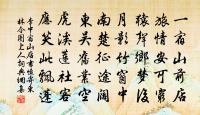 一宿山前店
旅情安可窮
猿聲鄉夢後
月影竹窗中
南楚征途闊
東吳舊業空
虎溪蓮社客
應笑此飄蓬
李中宿山店書懷寄東
林令圖上人詞典網集